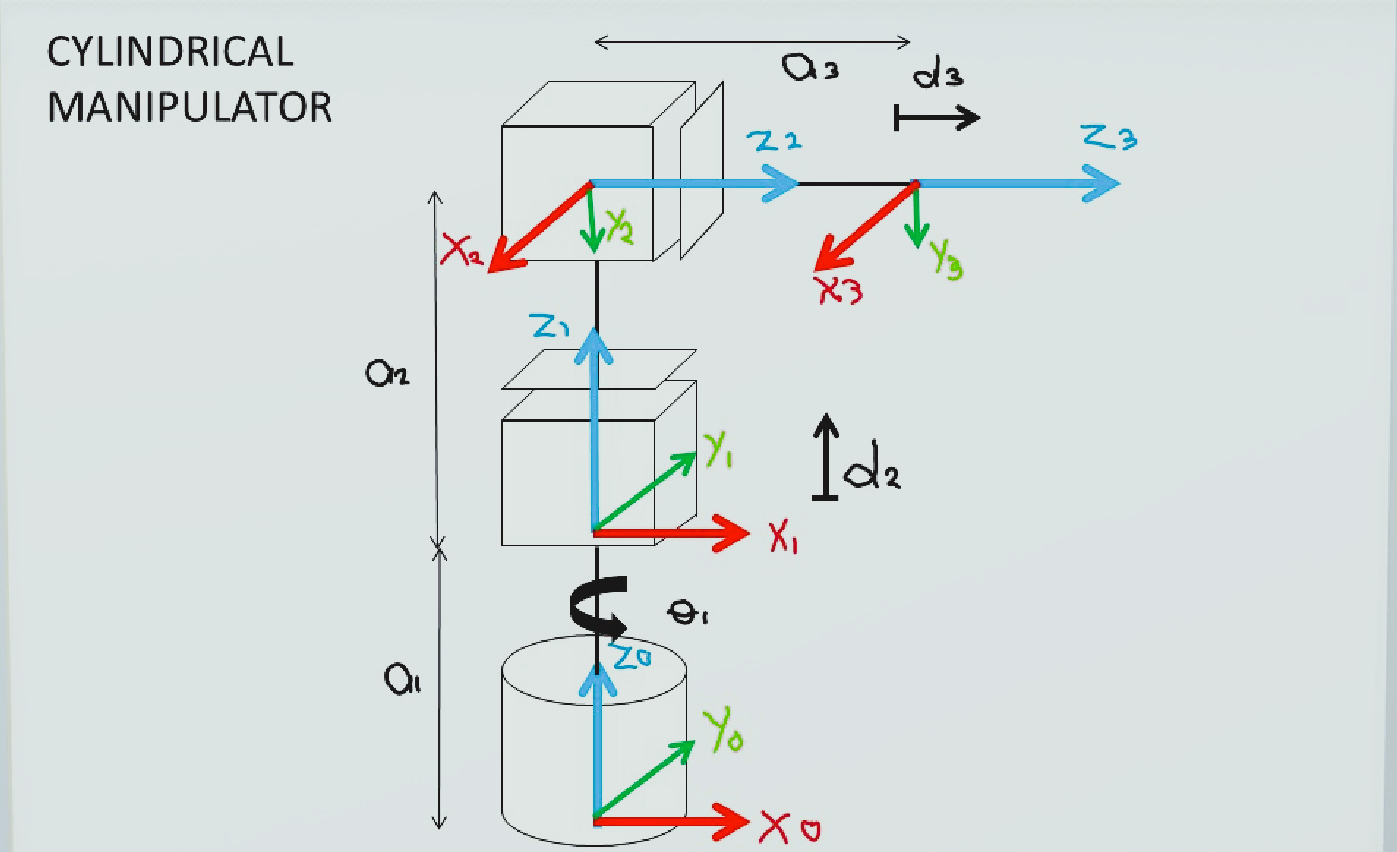 CYLINDRICAL
MANIPULATOR
a3
d3
Z2
Z3
X2
Y2
X3
Y3
Z1
a2
Y1
d2
X1
θ1
Z0
a1
Y0
X0